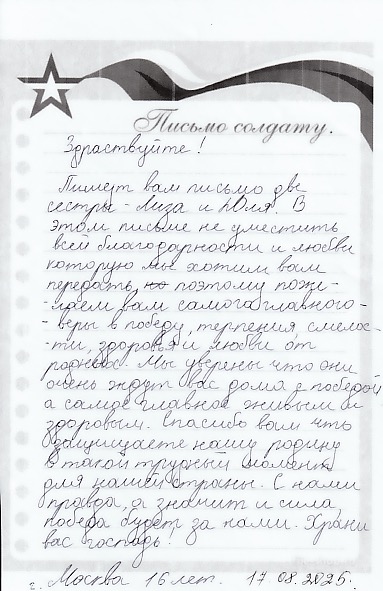 Письмо солдату.
Здраствуйте!
Пишут вам письмо две
сестры - Лиза и Юля. В
этом письме не уместить
всей благодарности и любви
которую мы хотим вам
передать, но поэтому поже-
-лаем вам самога главного -
- веры в победу, терпения, смелос-
-ти, здоровья и любви от
родных. Мы уверены что они
очень ждут вас дома с победой
а самое главное живым и
здоровым. Спасибо вам что
защищаете нашу родину
в такой трудный момент
для нашей страны. С нами
правда, а значит и сила,
победа будет за нами. Храни
вас господь!
г. Москва 16 лет. 17.08.2025.